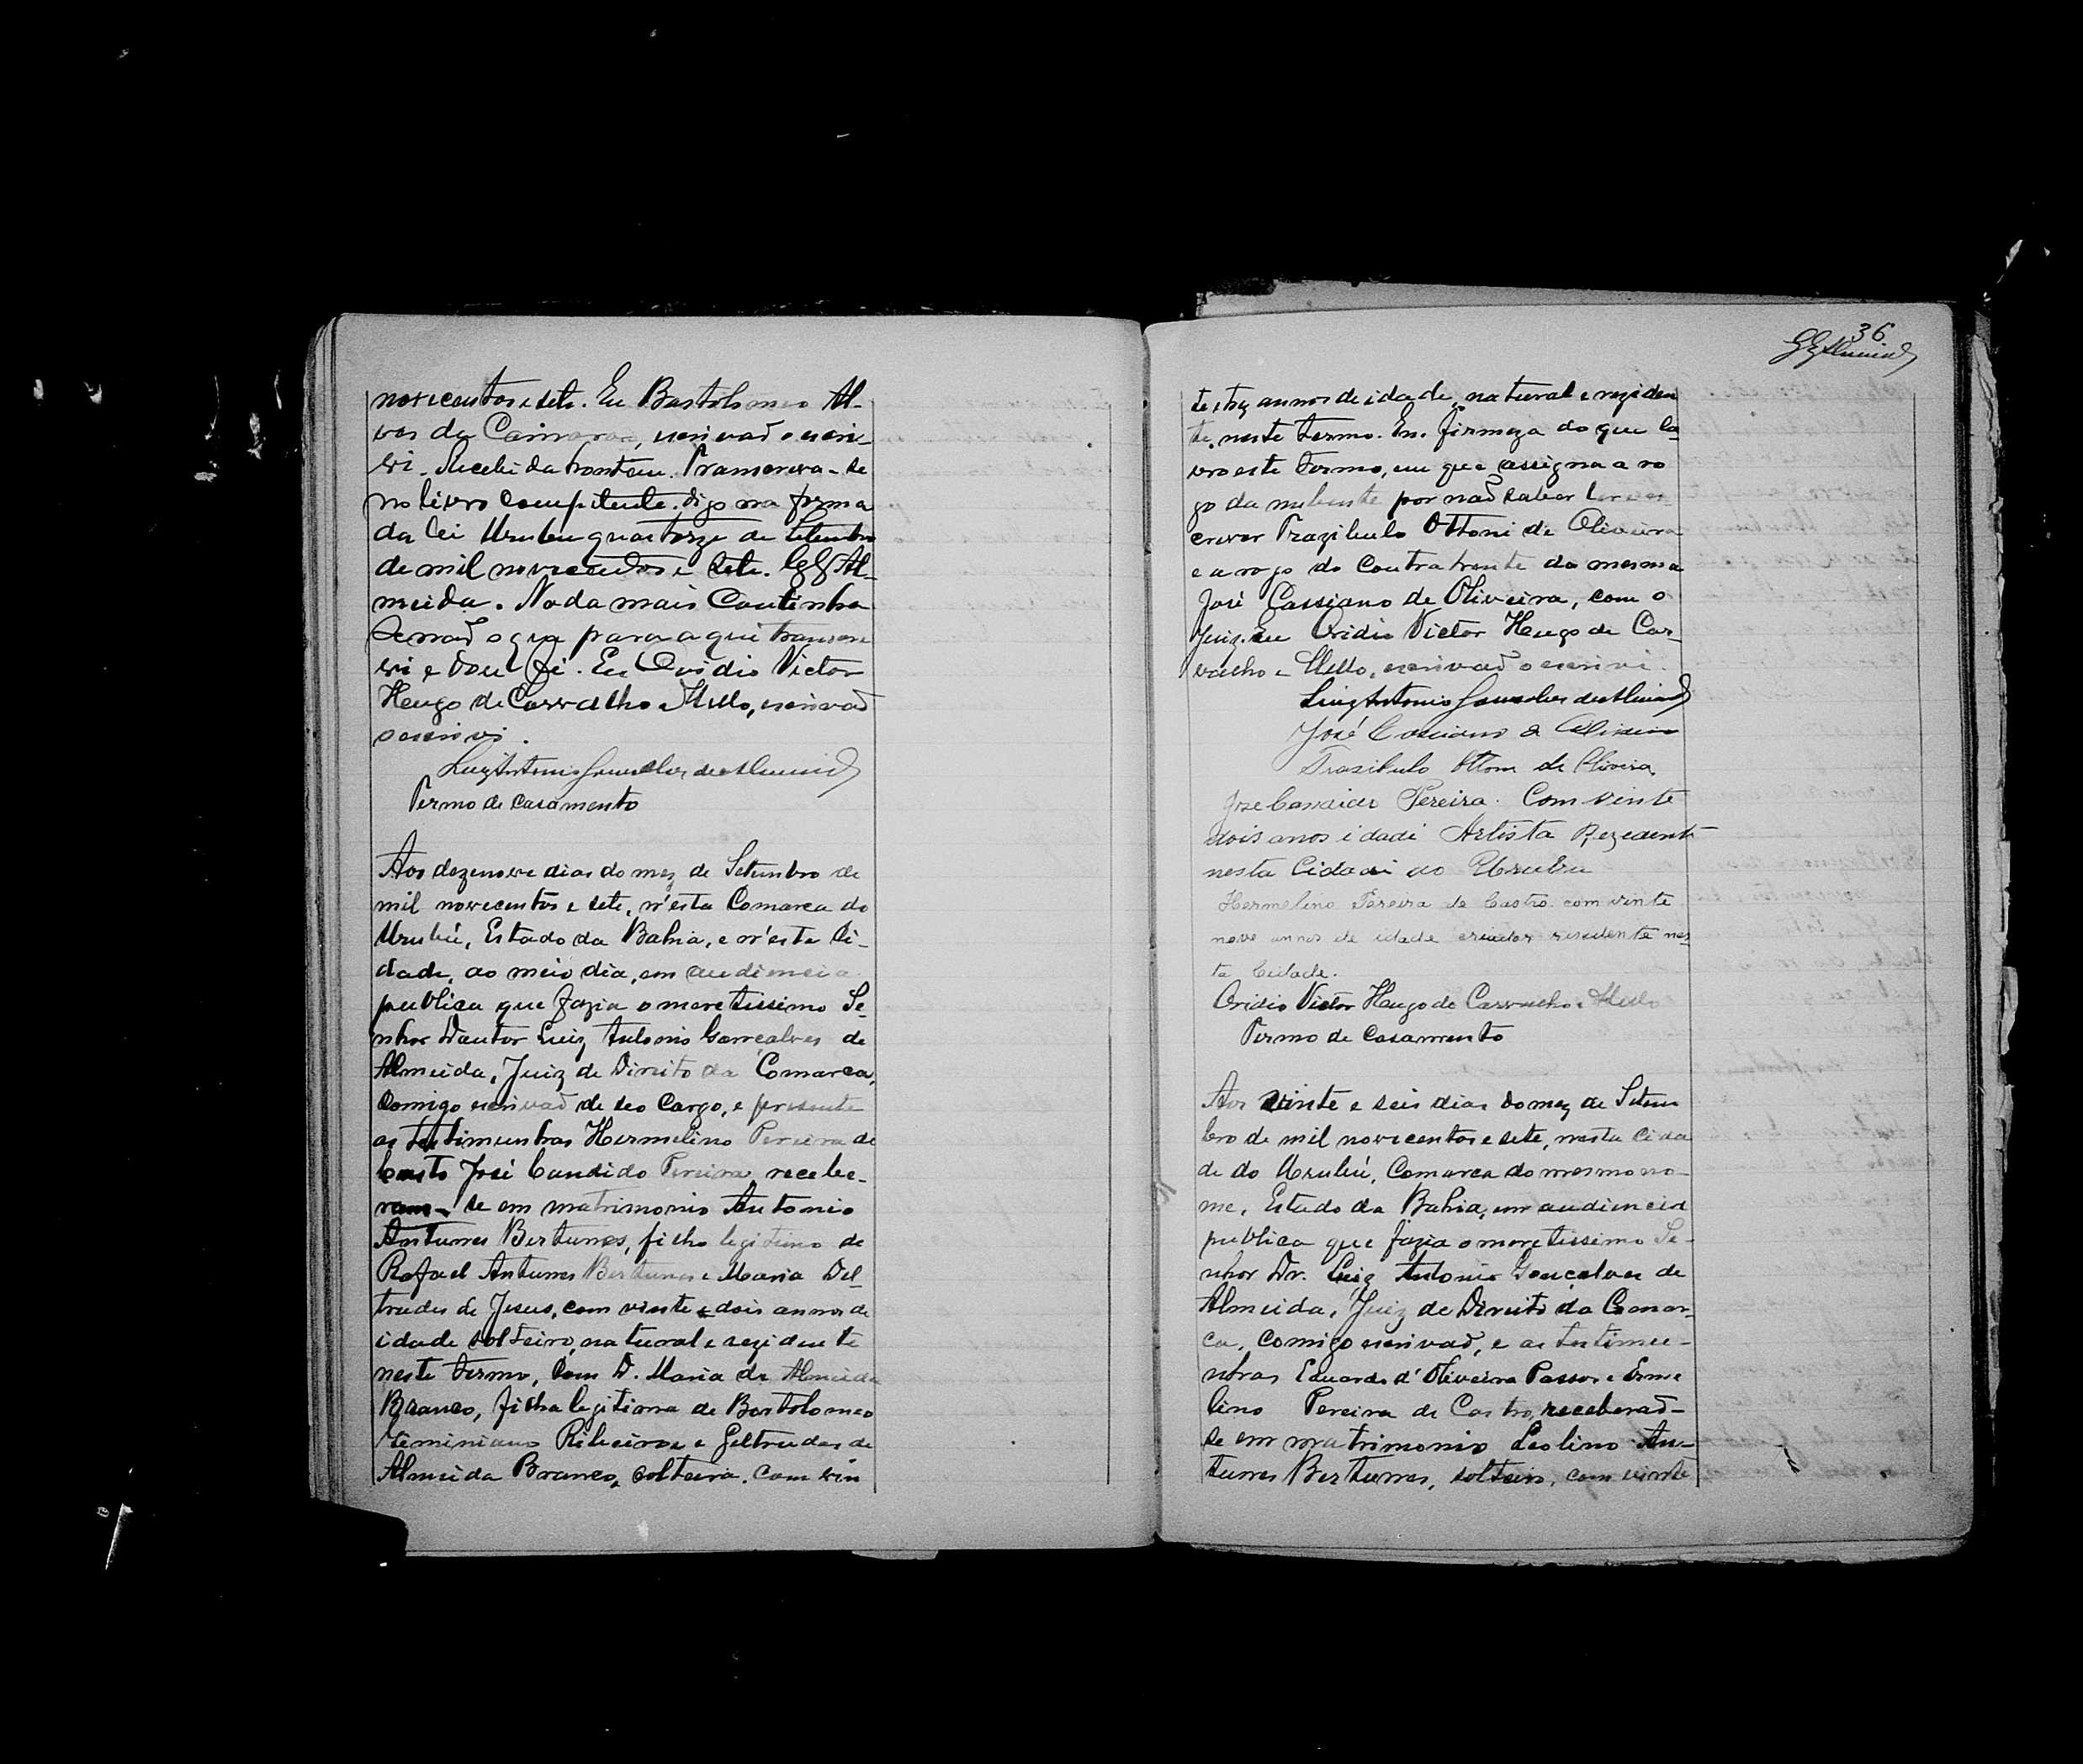 novecentos e sete. Eu Bartolomeo Al-
ves da Camara, escrivaõ o escre-
vi. Recebida hontem. Transcreva-se
no livro competente, digo na forma
da lei Urubu quatorze de Setembro
de mil novecentos e sete. Al-
meida. Nada mais Continha
senaõ o que para aqui transcre
vi e dou fé. Eu Ovidio Victor
Hugo de Carvalho e Mello, escrivaõ
o escrevi.
Luiz Antonio Gonçalves de Almeida
Termo de Casamento
Aos dezenove dias do mez de Setembro de
mil novecentos e sete, n'esta Comarca do
Urubú, Estado da Bahia, e n'esta Ci-
dade, ao meio dia, em audiencia
publica que fazia o meretissimo Se-
nhor Doutor Luiz Antonio Gonçalves de
Almeida, Juiz de Direito da Comarca,
Comigo escrivaõ de seo Cargo, e presente
as testimunhas Hermelino Pereira de
Casto José Candido Pereira, recebe-
ram-se em matrimonio Antonio
Antunes Bertunes, filho legitimo de
Rafael Antunes Bertunes e Maria Del-
trudes de Jesus, com vinte e dois annos de
idade solteiro, natural e rezidente
neste termo, Com D. Maria de Almeida
Branco, filha legitima de Bartolomeo
Ribeiro e Geltrudes de
Almeida Branco, solteira. Com vin
36
te e trez annos de idade, natural e reziden
te, neste termo. Em firmeza do que la
vro este termo, em que assigna a ro
go da nubente por naõ saber ler
crever Trazibulo Ottoni de Oliveira
e a rogo do Contratrente da mesma
José Cassiano de Oliveira, com o
Juiz. Eu Ovidio Victor Hugo de Car-
valho e Mello, escrivaõ o escrevi.
Luiz Antonio Gonçalves de Almeida
José Cassiano de Oliveira
Trasibulo Ottoni de Oliveira
José Candido Pereira. Com vinte
dois anos idadi Artista Rezedente
nesta Cidadi do Urubu
Hermelino Pereira de Castro com vinte
nove annos de idade criador residente nes
ta Cidade.
Ovidio Victor Hugo de Carvalho e Mello
Termo de Casamento
Aos vinte e seis dias do mez de Setem
bro de mil novecentos e sete, nesta Cida
de do Urubú, Comarca do mesmo no-
me, Estado da Bahia, em audiencia
publica que fazia o meretissimo Se-
nhor Dr. Luiz Antonio Gonçalves de
Almeida, Juiz de Direito da Comar-
ca, comigo escrivaõ, e as testimu-
nhas Eduardo d'Oliveira Passos e Erme
lino Pereira de Castro, receberaõ-
se em matrimonio Leolino An-
tunes Bertunes, solteiro, com vinte